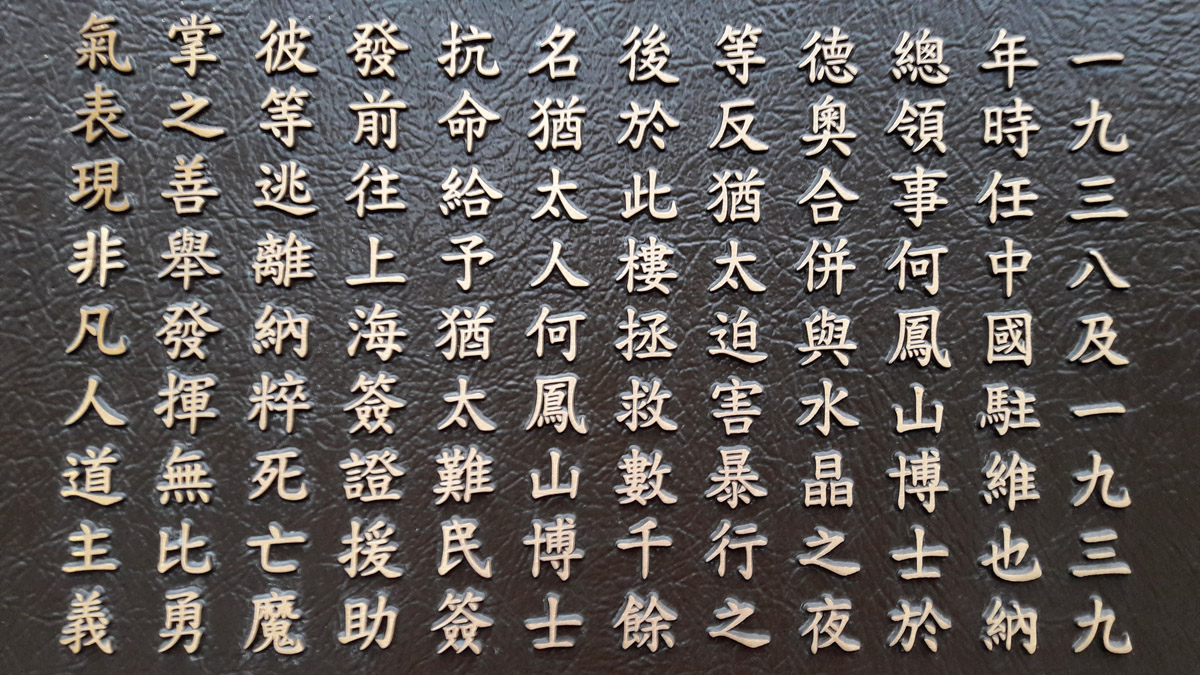 一九三八及一九三九
年時任中國駐維也納
總領事何鳳山博士於
德奧合併與水晶之夜
等反猶太迫害暴行之
後於此樓拯救數千餘
名猶太人何鳳山博士
抗命給予猶太難民簽
發前往上海簽證援助
彼等逃離納粹死亡魔
掌之善舉發揮無比勇
氣表現非凡人道主義